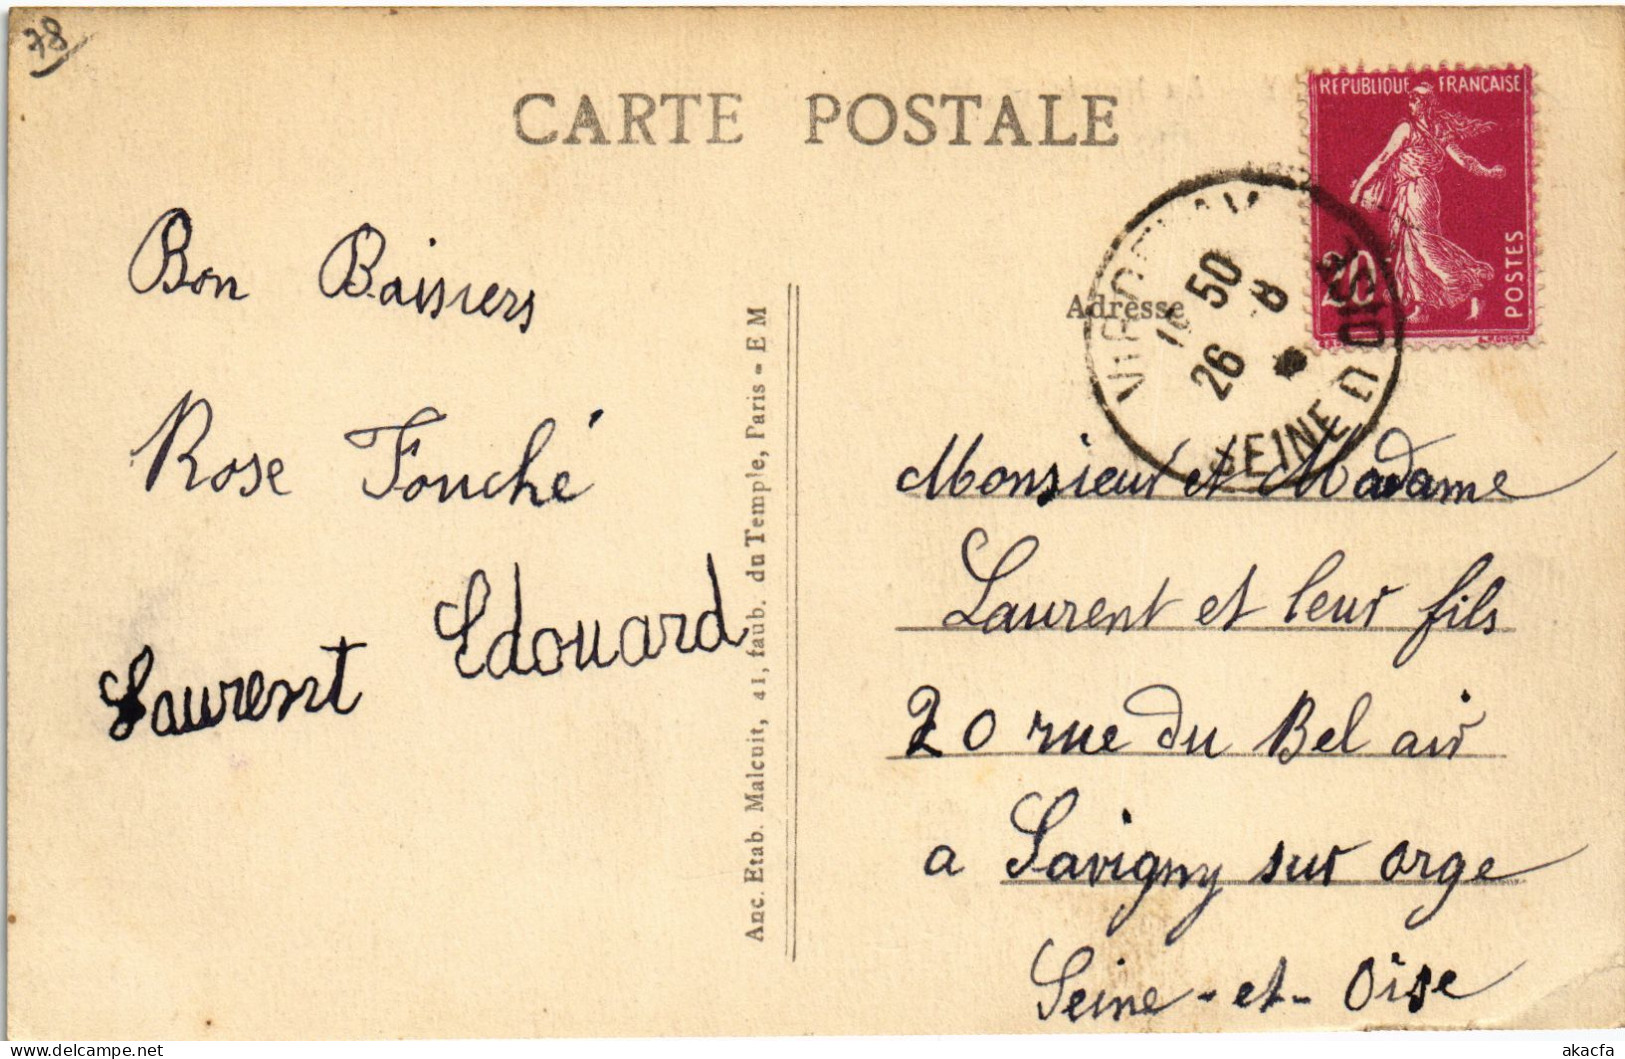 78
CARTE POSTALE
REPUBLIQUE FRANÇAISE
20c
POSTES
50
26 8
SEINE
OISE
Adresse
Bon Baisiers
Rose Fouché
Laurent Edouard
Anc. Etab. Malcuit, 41, faub. du Temple, Paris - E M
Monsieur et Madame
Laurent et leur fils
20 rue du Bel air
a Savigny sur orge
Seine-et-Oise
akacfa